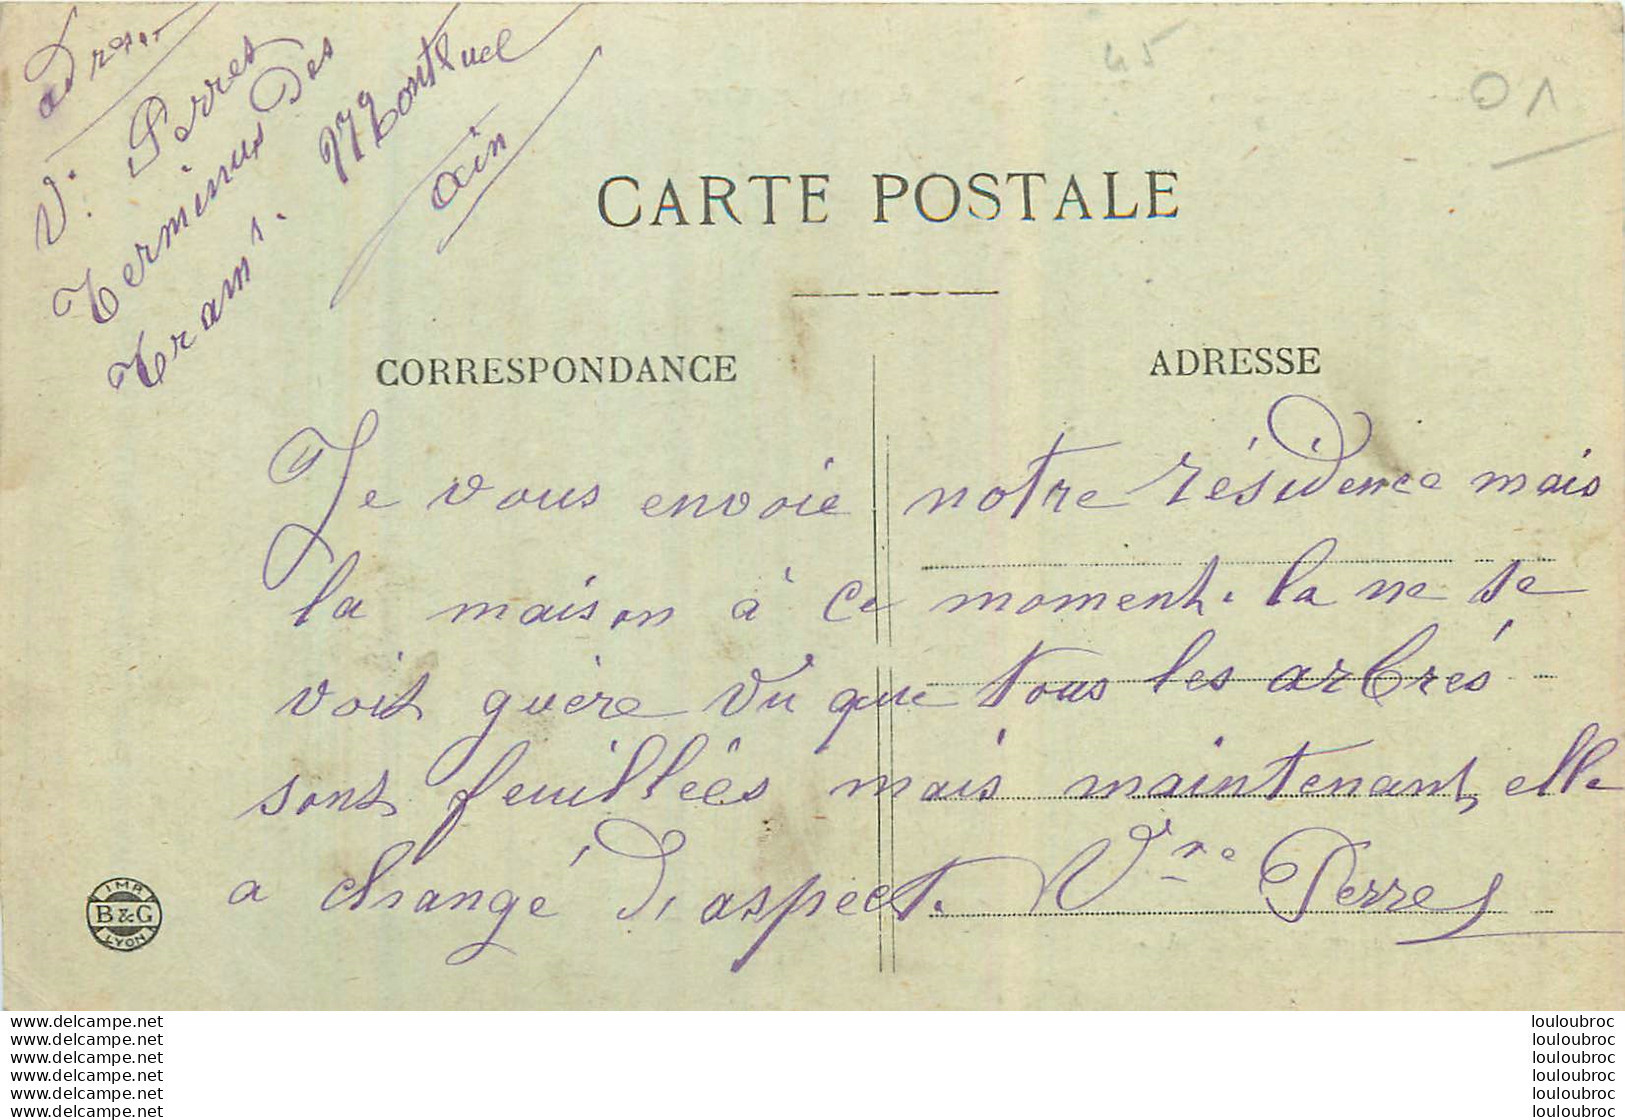 adres.
V. Perret
Terminus Des
Tram. Montluel
ain
45
01
CARTE POSTALE
CORRESPONDANCE
ADRESSE
Je vous envoie notre résidence mais
la maison à ce moment. la ne se
voit guère vu que tous les arbrés
sont feuilleés mais maintenant elle
a changé d'aspect. Vve Perret
IMP.
B&G
LYON
www.delcampe.net louloubroc
www.delcampe.net louloubroc
www.delcampe.net louloubroc
www.delcampe.net louloubroc
www.delcampe.net louloubroc
www.delcampe.net louloubroc